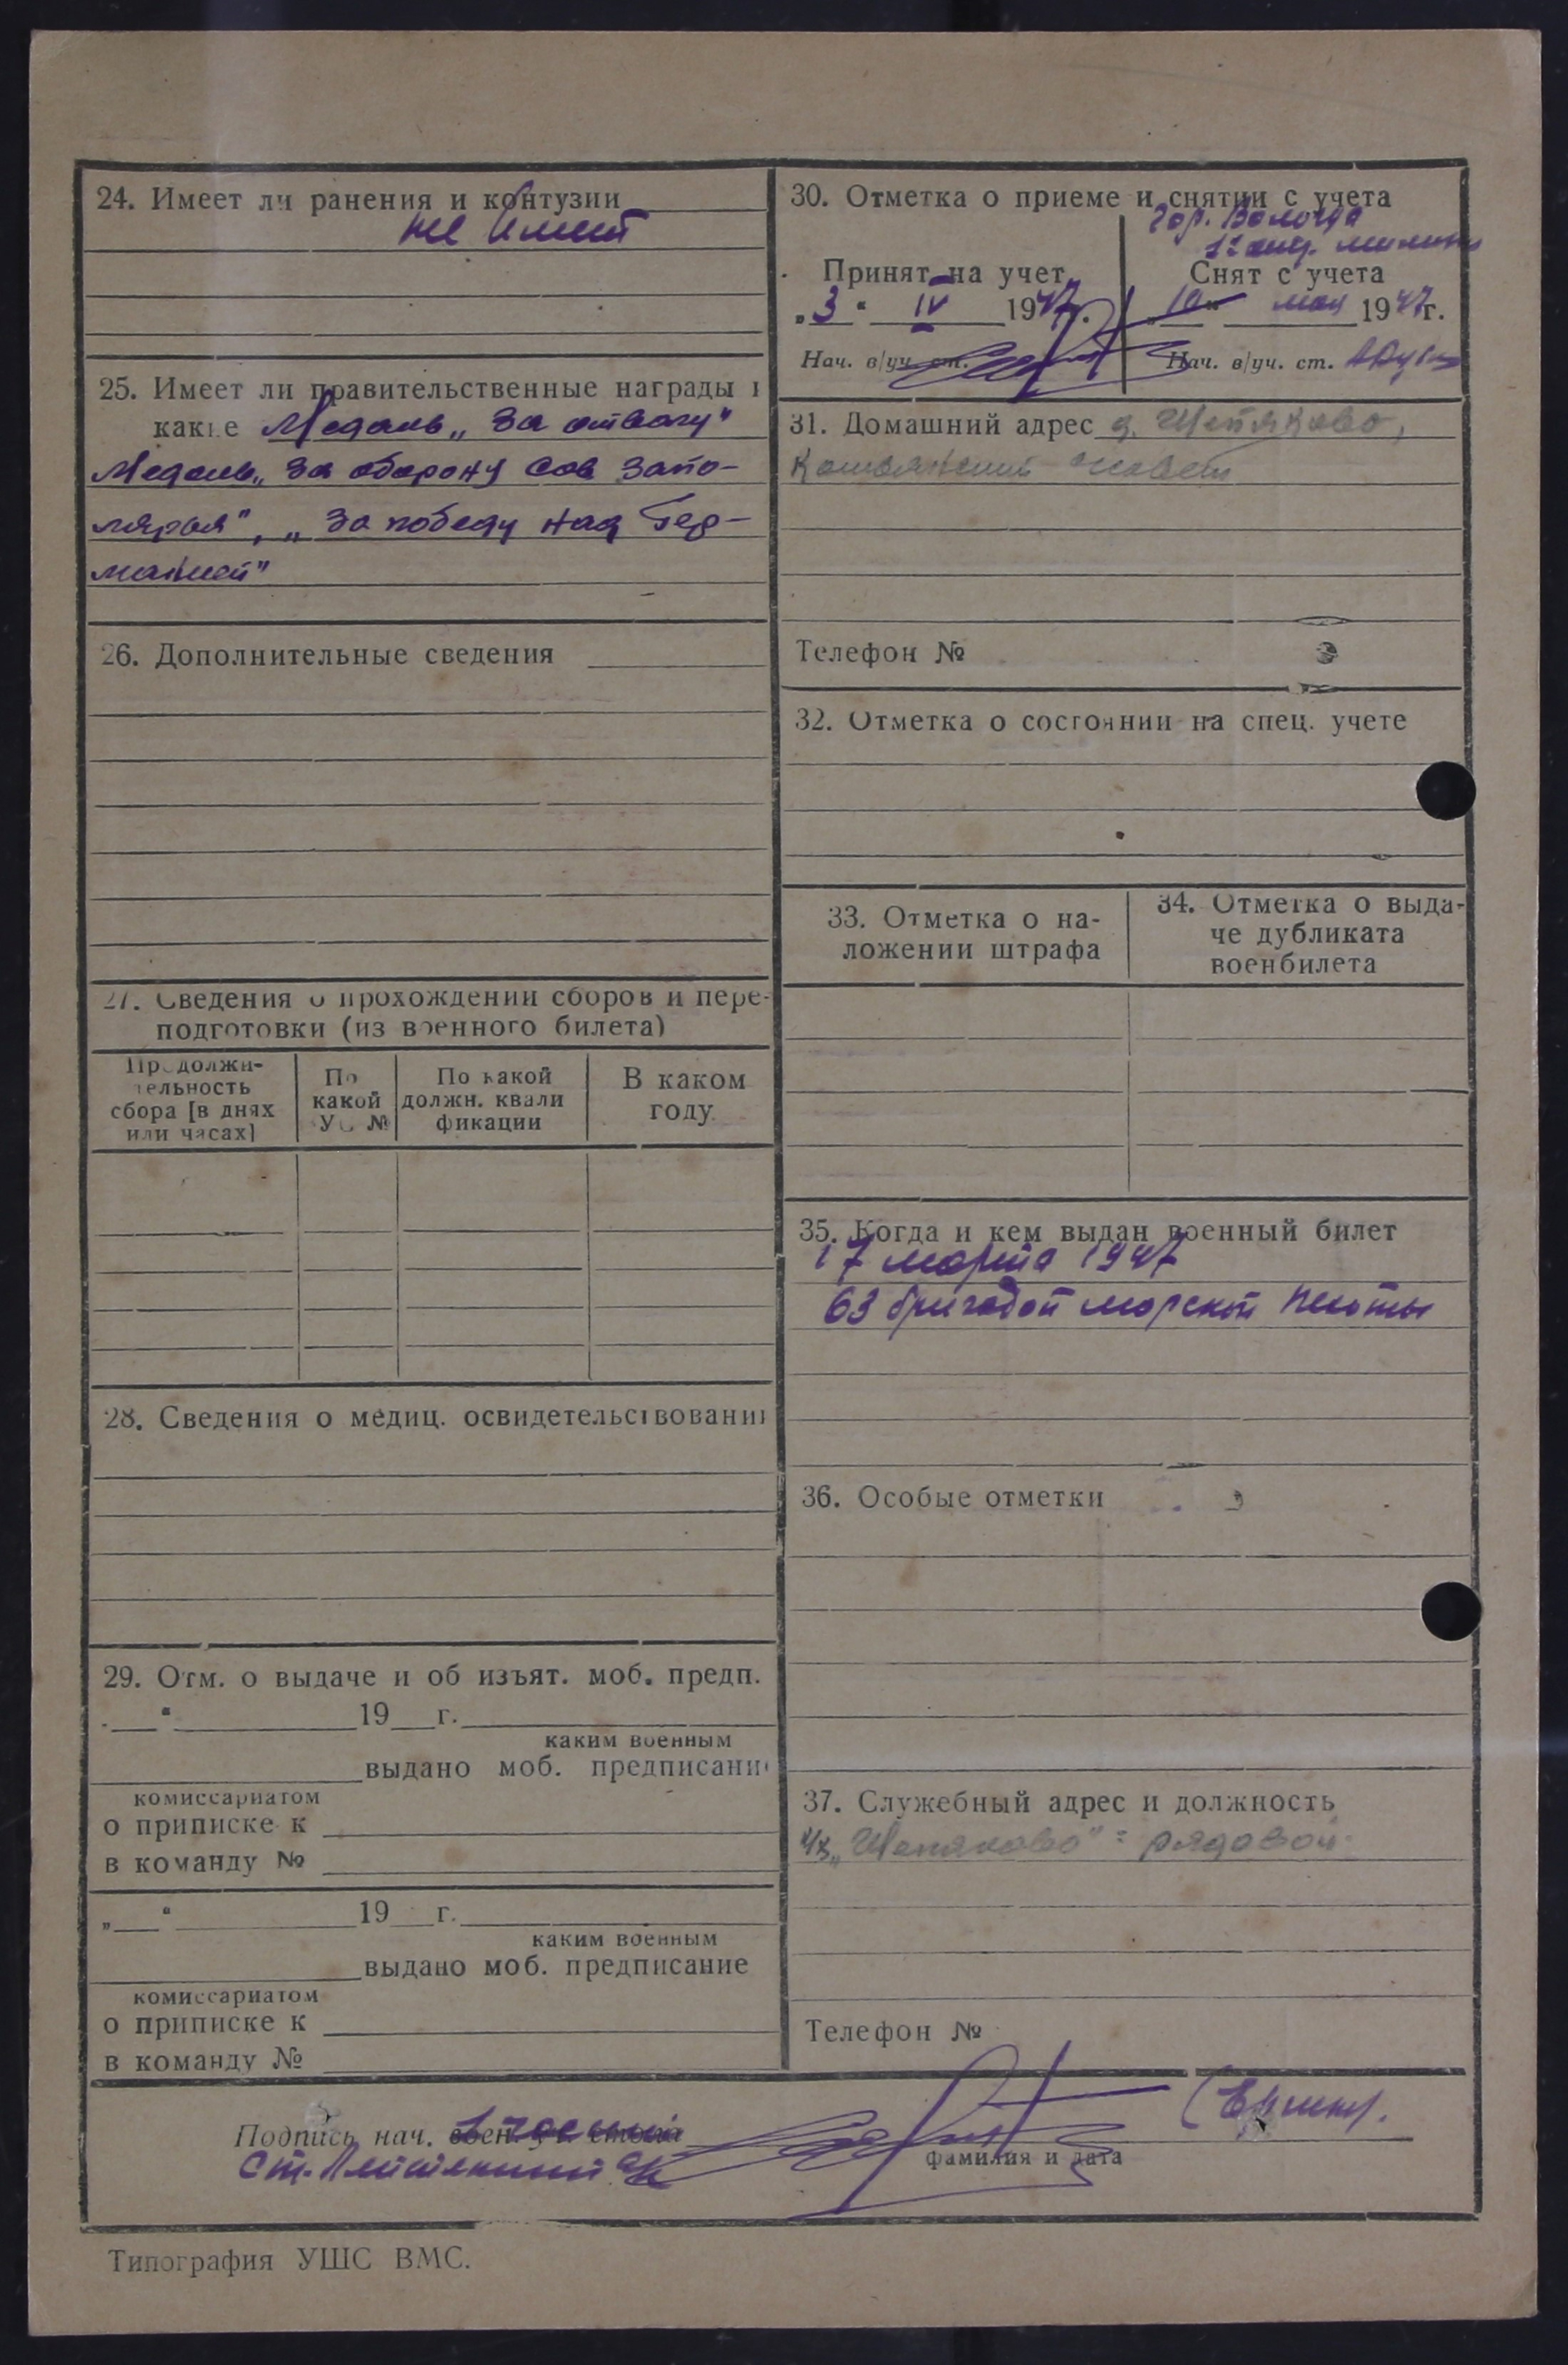 24. Имеет ли ранения и контузии
не имеет
25. Имеет ли правительственные награды и
какие Медаль „За отвагу"
Медаль „За оборону Сов Запо-
лярья", „За победу над Гер-
манией"
26. Дополнительные сведения
27. Сведения о прохождении сборов и пере-
подготовки (из военного билета)
Продолжи-
тельность
сбора [в днях
или часах]
По
какой
УС №
По какой
должн. квали
фикации
В каком
году
28. Сведения о медиц. освидетельствовании
29. Отм. о выдаче и об изъят. моб. предп.
„ “ 19 г.
каким военным
выдано моб. предписание
комиссариатом
о приписке к
в команду №
„ “ 19 г.
каким военным
выдано моб. предписание
комиссариатом
о приписке к
в команду №
30. Отметка о приеме и снятии с учета
гор. Вологда
Принят на учет
„3“ IV 1947г.
Нач. в/уч. ст.
Снят с учета
„10“ мая 1947г.
Нач. в/уч. ст.
31. Домашний адрес д. Шепяково,
совет
Телефон №
32. Отметка о состоянии на спец. учете
33. Отметка о на-
ложении штрафа
34. Отметка о выда-
че дубликата
военбилета
35. Когда и кем выдан военный билет
17 марта 1947
63 бригадой морской пехоты
36. Особые отметки
37. Служебный адрес и должность
к/з „Шепяково" = рядовой
Телефон №
Подпись нач.
Ст. Лейтенант
фамилия и дата
Типография УШС ВМС.